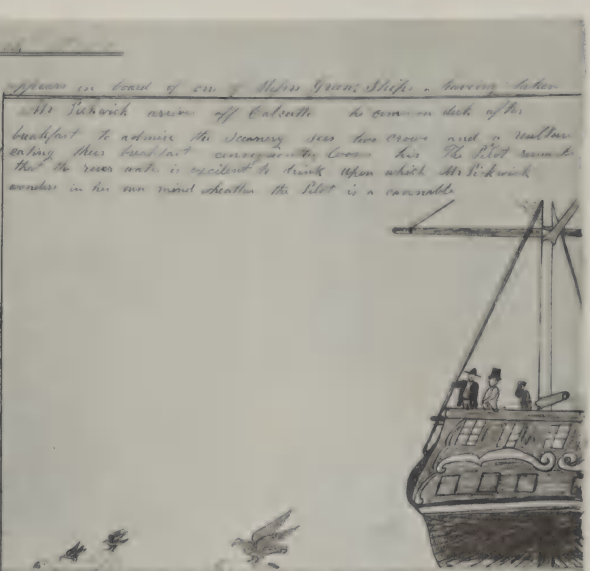 appears on board of one of Messrs Greens Ships - having taken
Mr Pickwick arrives off Calcutta he comes on deck after
breakfast to admire the Scenery sees two crows and a vulture
eating their breakfast consequently loses his The Pilot remarks
that the river water is excilent to drink upon which Mr Pickwick
wonders in his own mind wheather the Pilot is a cannable